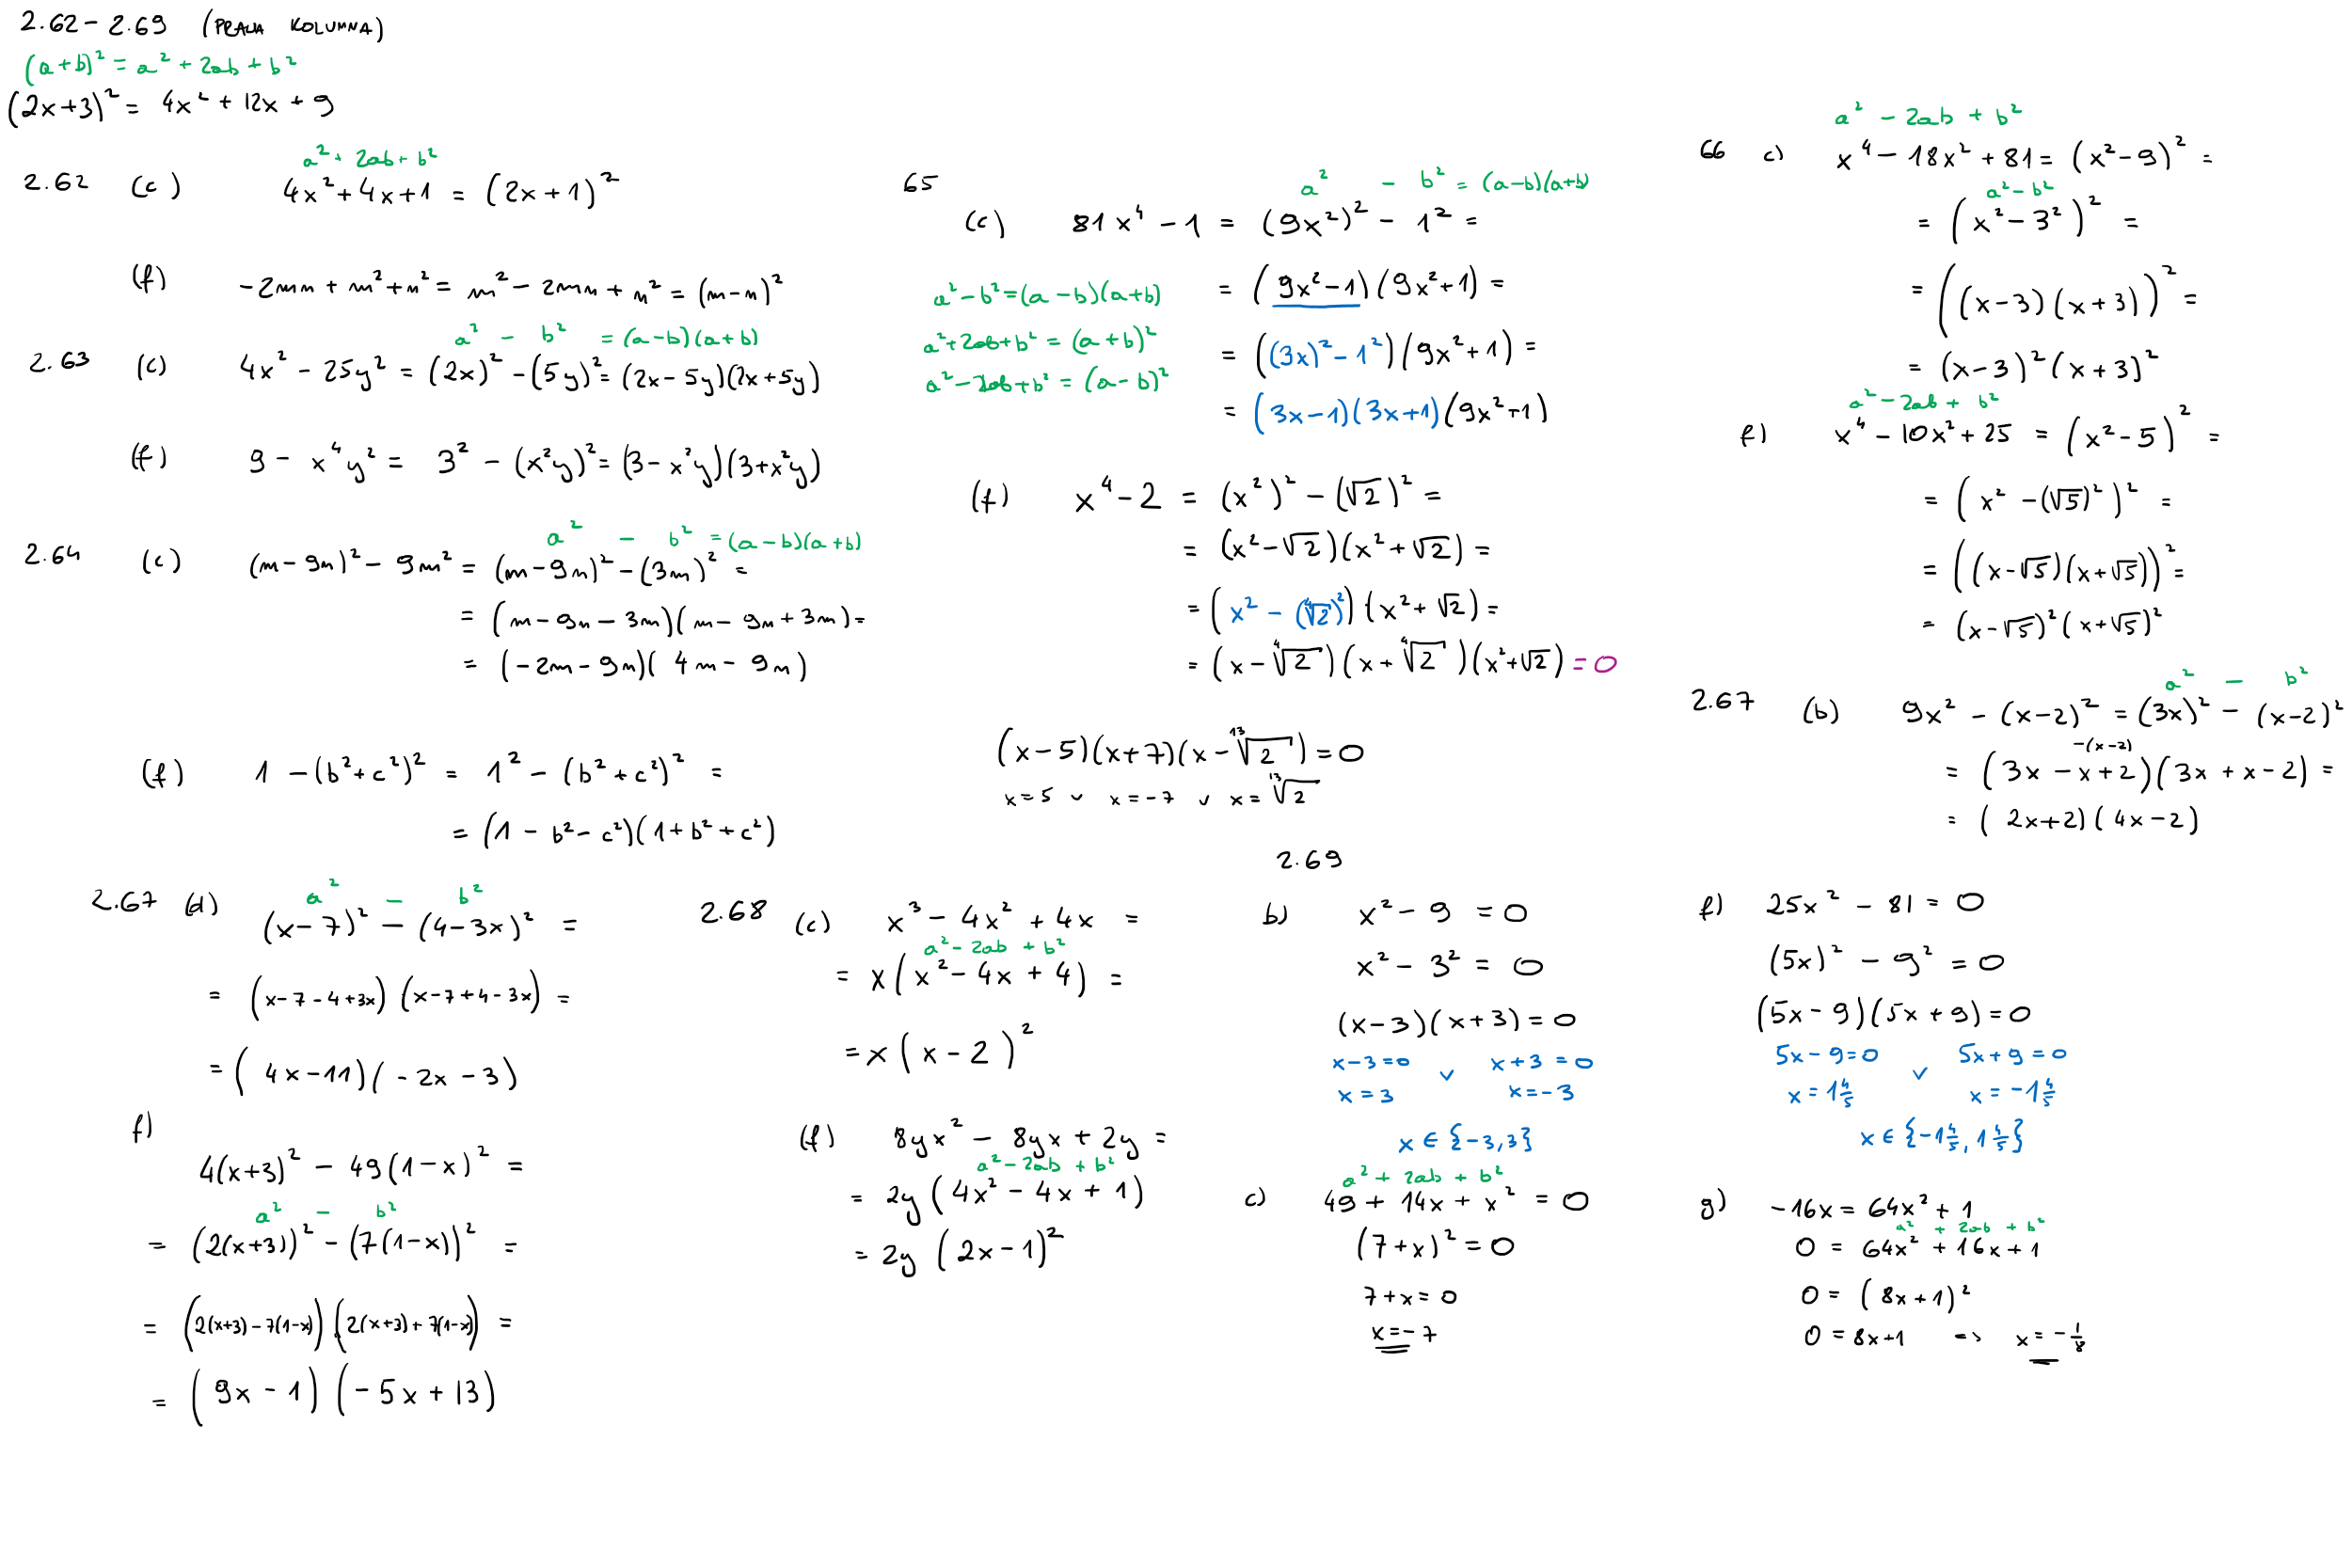 2.62 - 2.69 (PRAWA KOLUMNA)
(a+b)² = a² + 2ab + b²
(2x+3)² = 4x² + 12x + 9
a² + 2ab + b²
2.62 (c) 4x² + 4x + 1 = (2x+1)²
(f) -2mn + m² + n² = m² - 2mn + n² = (m-n)²
a² - b² = (a-b)(a+b)
2.63 (c) 4x² - 25y² = (2x)² - (5y)² = (2x-5y)(2x+5y)
(f) 9 - x⁴y² = 3² - (x²y)² = (3-x²y)(3+x²y)
a² - b² = (a-b)(a+b)
2.64 (c) (m-9n)² - 9m² = (m-9n)² - (3m)² =
= (m-9n-3m)(m-9n+3m) =
= (-2m-9n)(4m-9n)
(f) 1 - (b²+c²)² = 1² - (b²+c²)² =
= (1-b²-c²)(1+b²+c²)
65
a² - b² = (a-b)(a+b)
(c) 81x⁴ - 1 = (9x²)² - 1² =
= (9x²-1)(9x²+1) =
= ((3x)²-1²)(9x²+1) =
= (3x-1)(3x+1)(9x²+1)
a² - b² = (a-b)(a+b)
a² + 2ab + b² = (a+b)²
a² - 2ab + b² = (a-b)²
(f) x⁴ - 2 = (x²)² - (√2)² =
= (x²-√2)(x²+√2) =
= (x² - (∜2)²)(x²+√2) =
= (x-∜2)(x+∜2)(x²+√2) = 0
(x-5)(x+7)(x-¹³√2) = 0
x=5 ∨ x=-7 ∨ x=¹³√2
a² - 2ab + b²
66 c) x⁴ - 18x² + 81 = (x²-9)² =
a² - b²
= (x²-3²)² =
= ((x-3)(x+3))² =
= (x-3)²(x+3)²
a² - 2ab + b²
f) x⁴ - 10x² + 25 = (x²-5)² =
= (x² - (√5)²)² =
= ((x-√5)(x+√5))² =
= (x-√5)²(x+√5)²
a² - b²
2.67 (b) 9x² - (x-2)² = (3x)² - (x-2)²
-(x-2)
= (3x-x+2)(3x+x-2) =
= (2x+2)(4x-2)
a² - b²
2.67 (d) (x-7)² - (4-3x)² =
= (x-7-4+3x)(x-7+4-3x) =
= (4x-11)(-2x-3)
f)
4(x+3)² - 49(1-x)² =
a² - b²
= (2(x+3))² - (7(1-x))² =
= (2(x+3)-7(1-x))(2(x+3)+7(1-x)) =
= (9x-1)(-5x+13)
2.68 (c) x³ - 4x² + 4x =
a² - 2ab + b²
= x(x² - 4x + 4) =
= x(x-2)²
(f) 8yx² - 8yx + 2y =
a² - 2ab + b²
= 2y(4x² - 4x + 1)
= 2y(2x-1)²
2.69
b) x² - 9 = 0
x² - 3² = 0
(x-3)(x+3) = 0
x-3=0 ∨ x+3=0
x=3 x=-3
x ∈ {-3,3}
a² + 2ab + b²
c) 49 + 14x + x² = 0
(7+x)² = 0
7+x=0
x=-7
f) 25x² - 81 = 0
(5x)² - 9² = 0
(5x-9)(5x+9) = 0
5x-9=0 ∨ 5x+9=0
x = 1⅘ x = -1⅘
x ∈ {-1⅘, 1⅘}
g) -16x = 64x² + 1
a² + 2ab + b²
0 = 64x² + 16x + 1
0 = (8x+1)²
0 = 8x+1 => x = -⅛